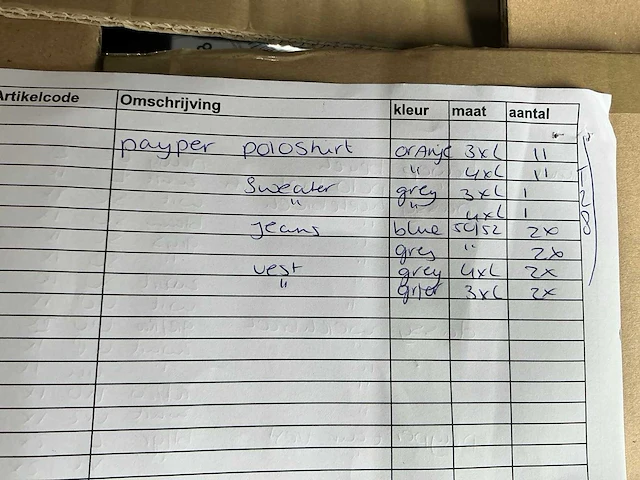 Artikelcode Omschrijving kleur maat aantal
payper poloshirt oranje 3XL 11
" 4XL 11
Sweater grey 3XL 1
" " 4XL 1
Jeans blue 50/52 2x
grey " 2x
vest grey 4XL 2x
" 3XL 2x
128